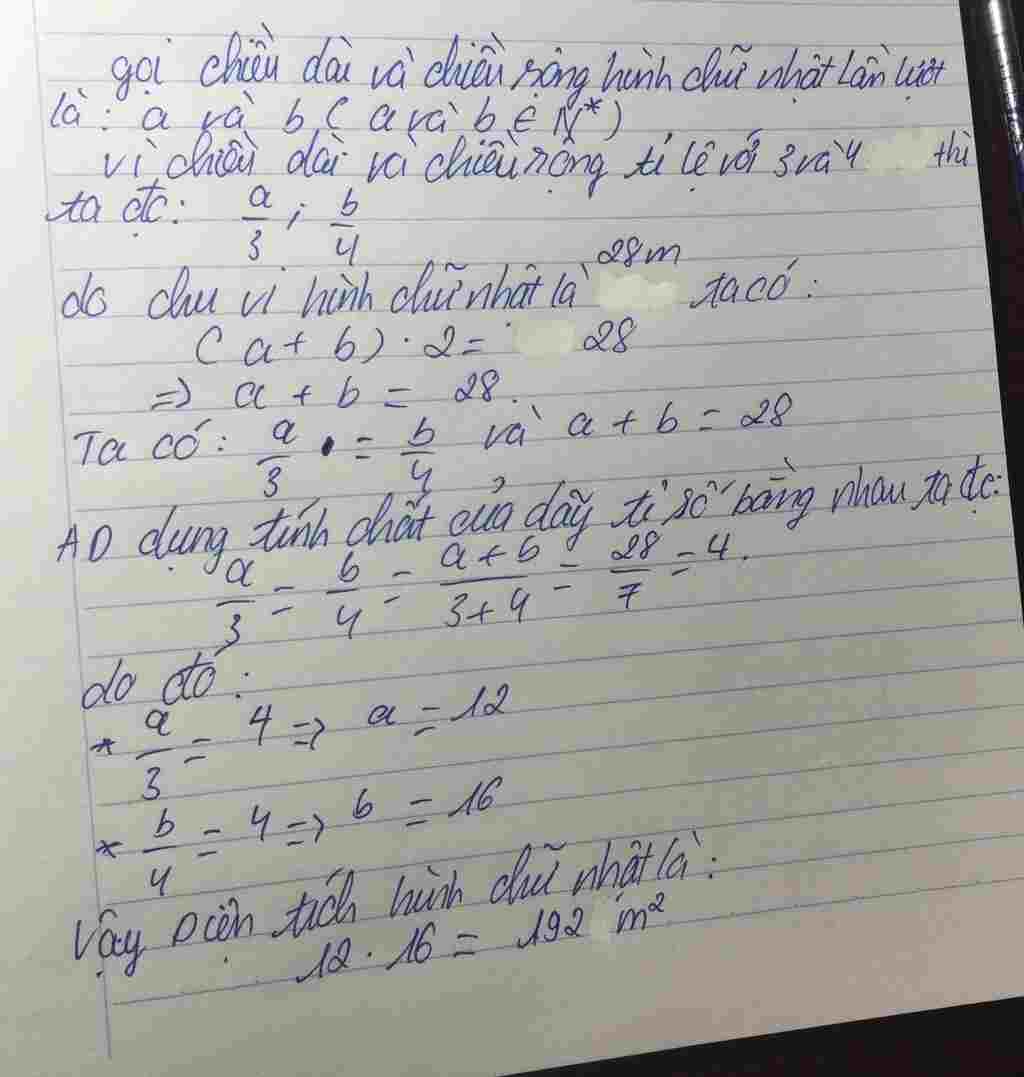 gọi chiều dài và chiều rộng hình chữ nhật lần lượt
là : a và b ( a và b ∈ N*)
vì chiều dài và chiều rộng tỉ lệ với 3 và 4 thì
ta đc: a/3 ; b/4
do chu vi hình chữ nhật là 28m ta có :
( a + b ) . 2 = 28
=> a + b = 28.
Ta có : a/3 = b/4 và a + b = 28
AD dụng tính chất của dãy tỉ số bằng nhau ta đc:
a/3 = b/4 = a + b/3 + 4 = 28/7 = 4.
do đó :
* a/3 = 4 => a = 12
* b/4 = 4 => b = 16
Vậy Diện tích hình chữ nhật là :
12 . 16 = 192 m²